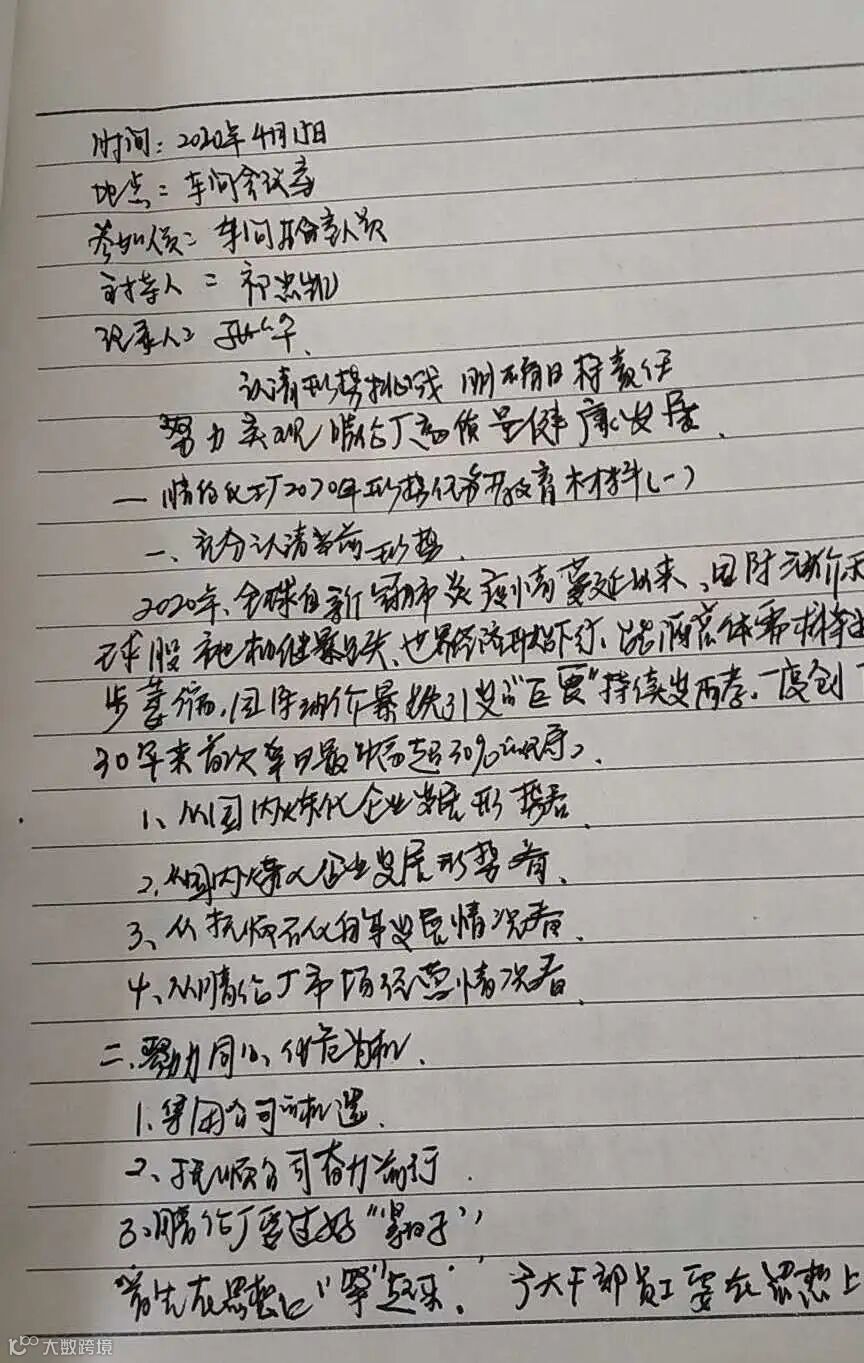 时间：2020年4月15日
地点：车间会议室
参加人员：车间全体人员
主持人：祁忠凯
记录人：
认清形势挑战 明确目标责任
努力实现腈纶厂高质量健康发展.
—腈纶化工厂2020年形势任务教育材料(一)
一、充分认清当前形势.
2020年、全球自新冠肺炎疫情蔓延以来、国际油价
球股市相继暴跌、世界经济开始下行、
步萎缩，国际油价暴跌引发的“巨震”持续发酵，一度创
30年来首次单日最大跌幅超30%的纪录，
1、从国内炼化企业发展形势看.
2、从国内煤化企业发展形势看、
3、从抚顺石化自身发展情况看.
4、从腈纶厂市场经营情况看.
二、努力同心、化危为机.
1、集团公司的机遇.
2、抚顺公司奋力前行.
3、腈纶厂要过好“紧日子”
首先在思想上“紧”起来. 广大干部员工要在思想上
大数跨境